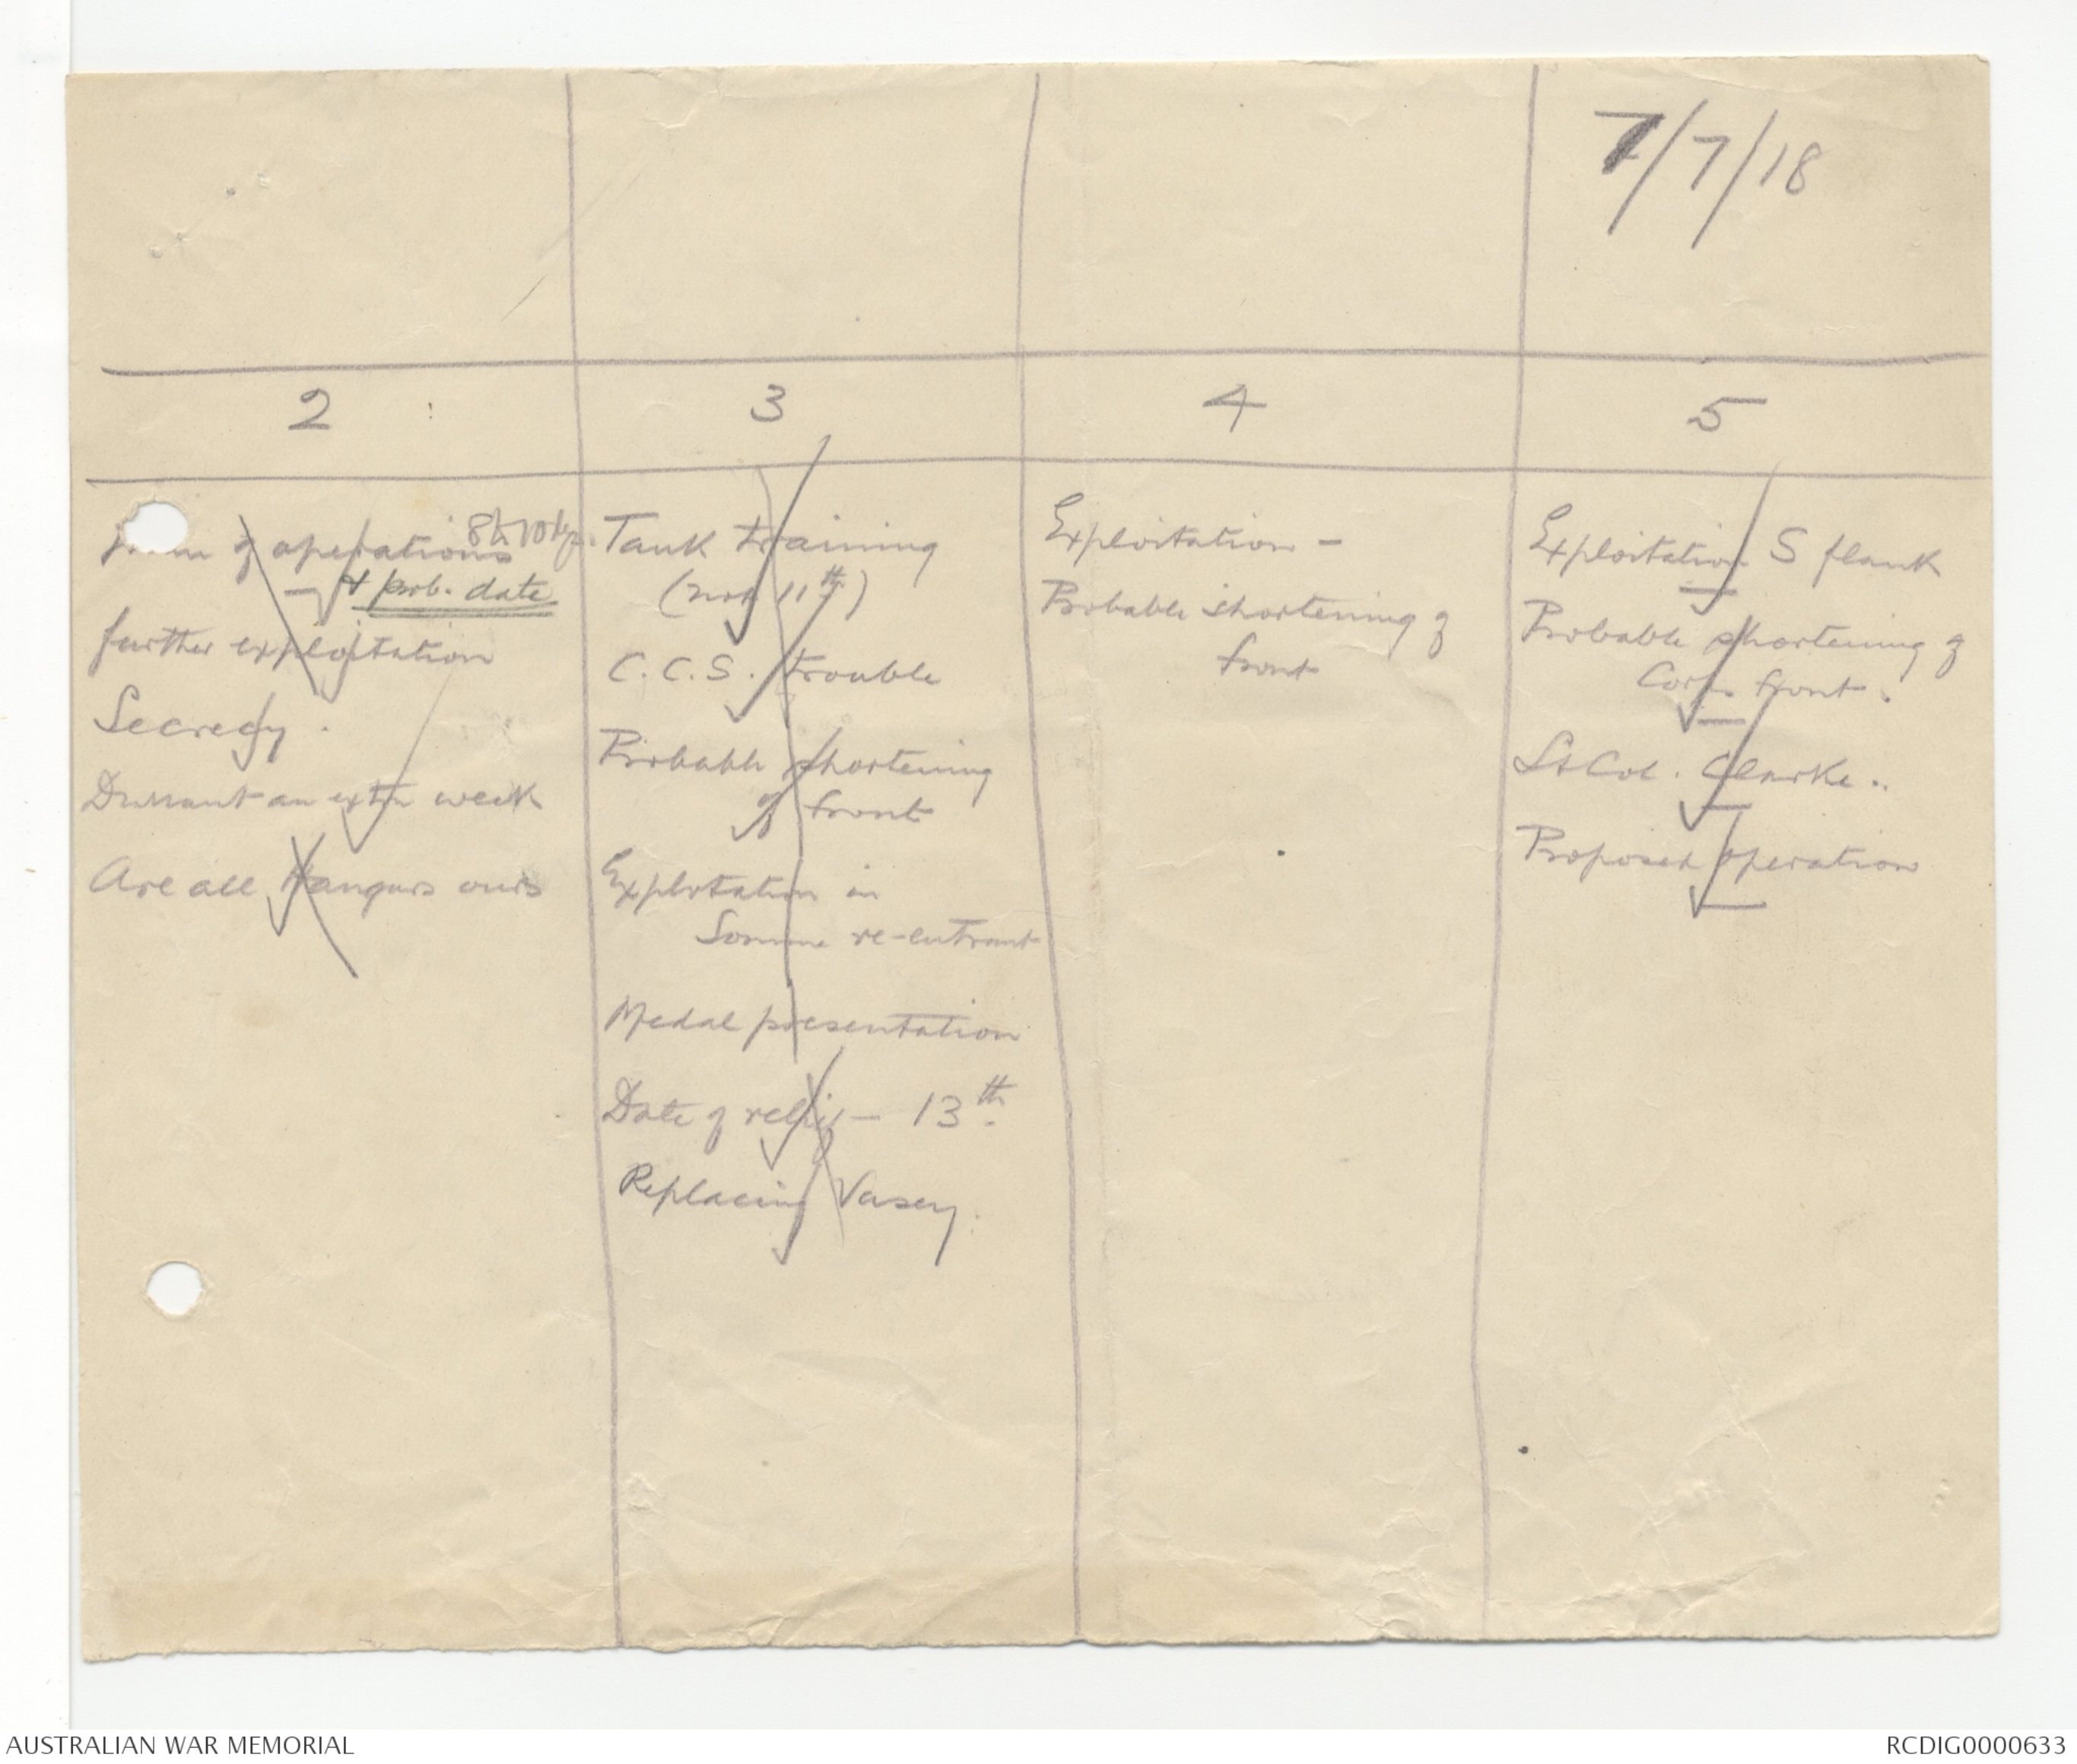 7/7/18
2
of operations
& prob. date
further exploitation
Secrecy.
Durrant an extra week
Are all hangars ours
3
Tank training
(not 11th)
C.C.S. trouble
Probable shortening
of front
Exploitation in
Somme re-entrant
Medal presentation
Date of relief - 13th
Replacing Vasey.
4
Exploitation -
Probable shortening of
front
5
Exploitation S flank
Probable shortening of
Corps front.
Lt Col. Clarke..
Proposed operation
AUSTRALIAN WAR MEMORIAL
RCDIG0000633